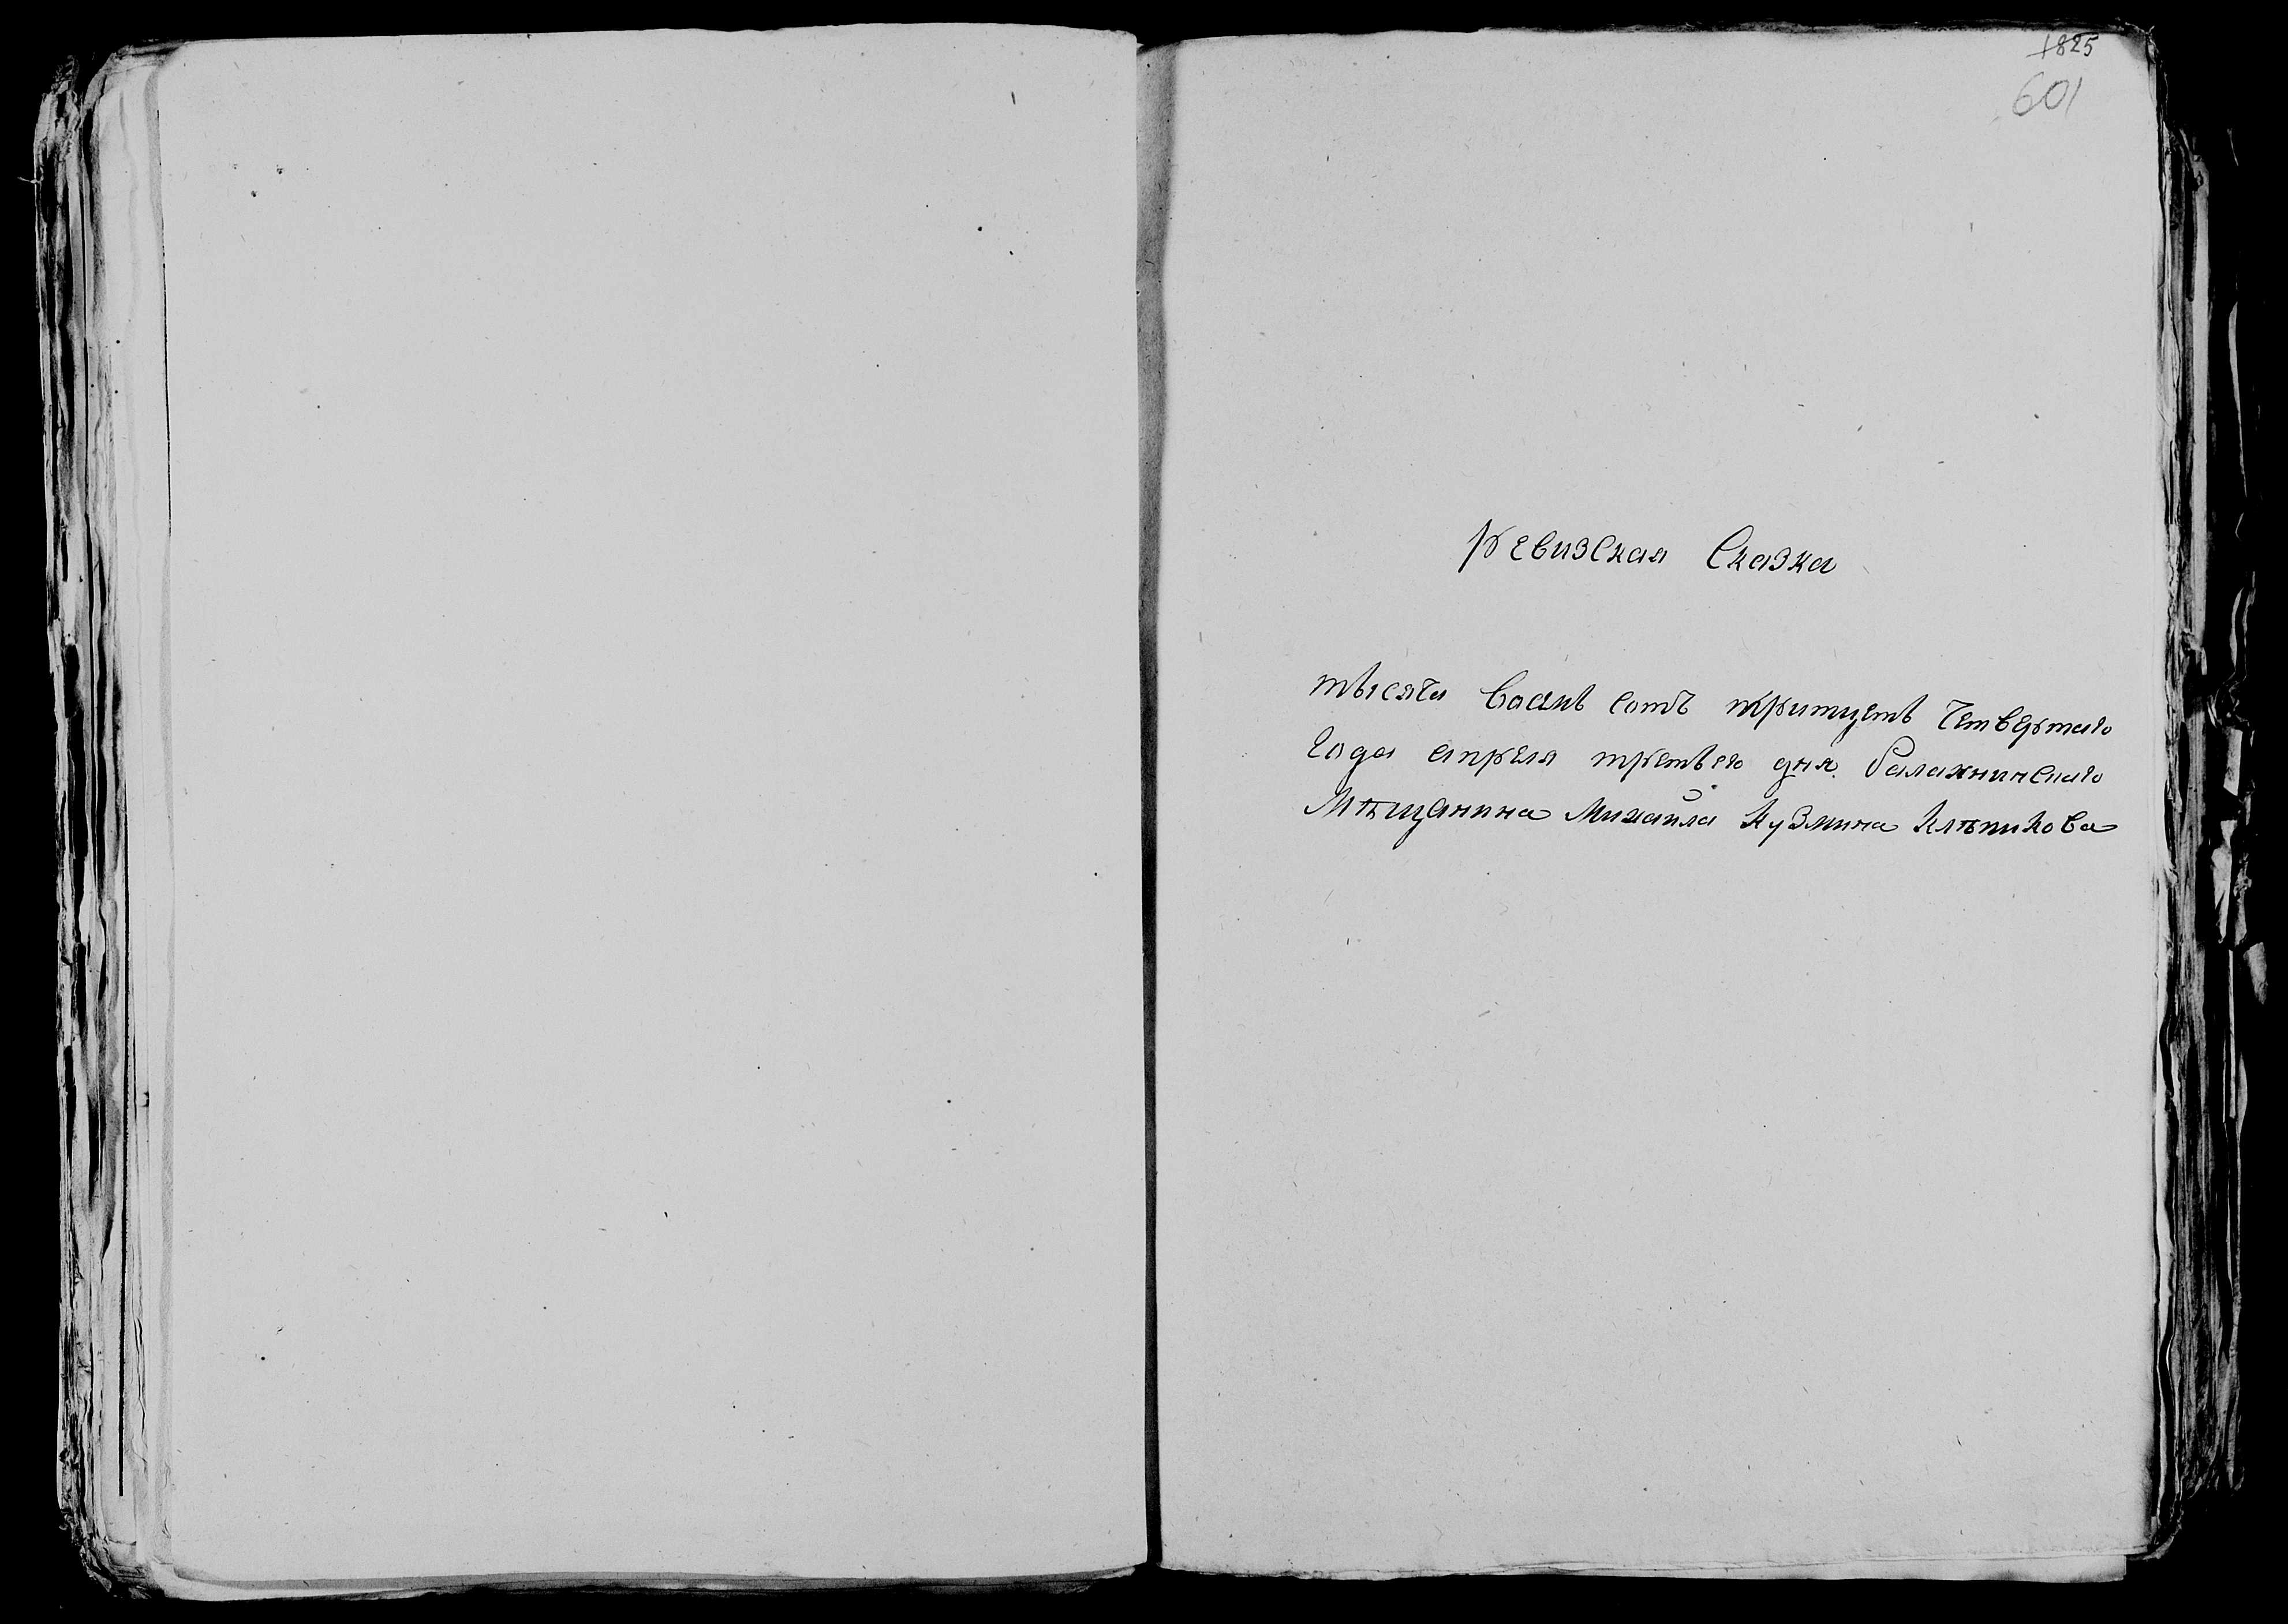 1825
601
Ревизская Сказка
тысяча восемь сотъ тритцеть четвертаго
года апреля третьего дня. балахнинскаго
Мѣщанина Михайла Кузмина Клѣпикова